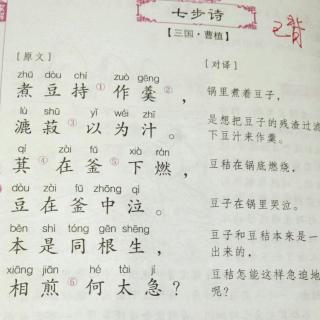 七步诗
【三国·曹植】
已背
[原文]
[对译]
zhǔ dòu chí zuò gēng
煮豆持①作羹②,
锅里煮着豆子,
lù shū yǐ wéi zhī
漉菽③以为汁。
是想把豆子的残渣过滤
下豆汁来作羹。
qí zài fǔ xià rán
萁④在釜⑤下燃,
豆秸在锅底燃烧,
dòu zài fǔ zhōng qì
豆在釜中泣。
豆子在锅里哭泣。
běn shì tóng gēn shēng
本是同根生,
豆子和豆秸本来是一
出来的,
xiāng jiān hé tài jí
相煎⑥何太急?
豆秸怎能这样急迫地
呢?